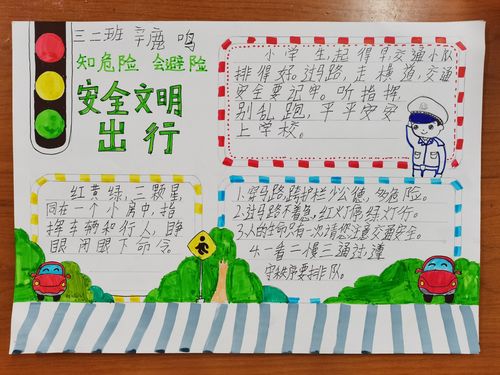 三二班 辛鹿鸣
知危险 会避险
安全文明
出行
小学生起得早交通小队
排得好。过马路,走横道,交通
安全要记牢。听指挥,
别乱跑,平平安安
上学校。
红黄绿,三颗星,
同在一个小房中,指
挥车辆和行人,睁
眼闭眼下命令。
1.穿马路,踏护栏少公德,多危险。
2.过马路不着急,红灯停绿灯行。
3.人的生命只有一次请您注意交通安全。
4.一看二慢三通过,遵
守秩序要排队。